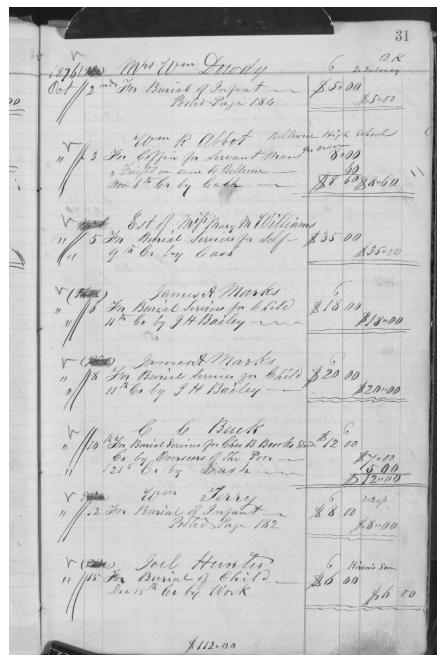 31
1876 Mrs Wm Dowdy 6
Oct 2 For Burial of Infant $5.00
Posted Page 184 $5.00
Wm R Abbot Bellevue High School
" 3 For Coffin for Servant 8.00
" Freight on same to Bellevue 60
6th Cr by Cash $8 60 $8.60
Est of Miss Mary M Williams
" 5 For Burial Services for Self $35 00
9th Cr by Cash $35.00
James A Marks 6
" 6 For Burial Services for Child $18 00
11th Cr by J H Bailey $18.00
James A Marks 6
" 8 For Burial Services for Child $20 00
11th Cr by J H Bailey $20.00
C C Buck 6
" 10 For Burial Services for Chs B Brooks $12 00
Cr by Overseers of the Poor $7.00
Cr by Cash 5 00
$12.00
Wm Terry 6
" 12 For Burial of Infant $8 00
Posted Page 182 $8.00
Joel Hunter 6
" 15 For Burial of Child $6 00
Dec 15th Cr by Work $6 00
$112.00